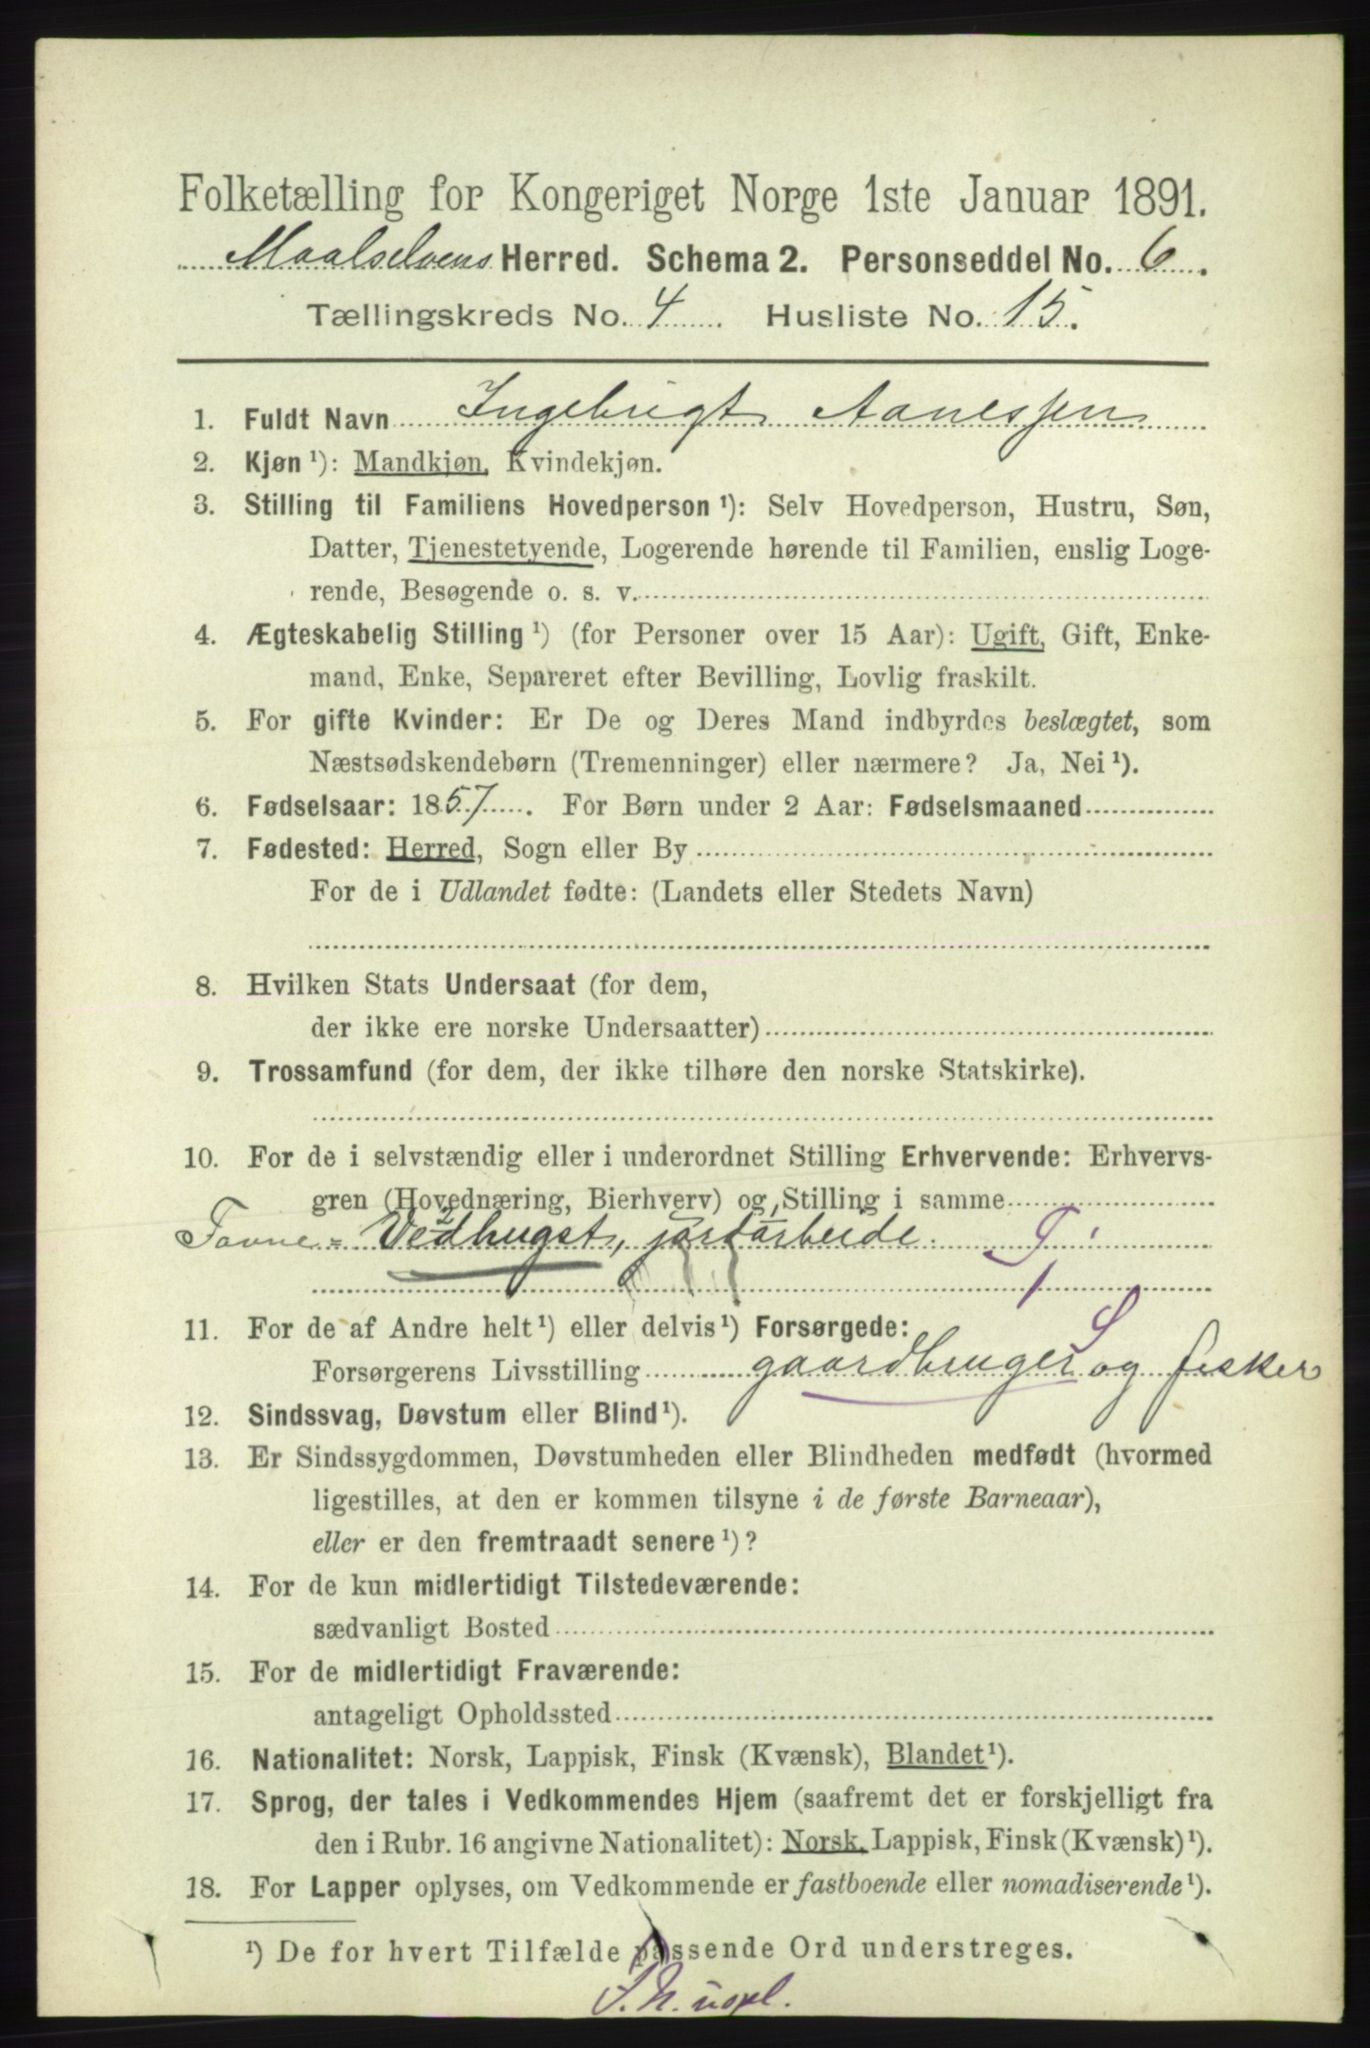 Folketælling for Kongeriget Norge 1ste Januar 1891.
Maalselvens Herred. Schema 2. Personseddel No. 6.
Tællingskreds No. 4 Husliste No. 15.
1. Fuldt Navn Ingebrigt Aanessen
2. Kjøn ¹): Mandkjøn, Kvindekjøn.
3. Stilling til Familiens Hovedperson ¹): Selv Hovedperson, Hustru, Søn,
Datter, Tjenestetyende, Logerende hørende til Familien, enslig Loge-
rende, Besøgende o. s. v.
4. Ægteskabelig Stilling ¹) (for Personer over 15 Aar): Ugift, Gift, Enke-
mand, Enke, Separeret efter Bevilling, Lovlig fraskilt.
5. For gifte Kvinder: Er De og Deres Mand indbyrdes beslægtet, som
Næstsødskendebørn (Tremenninger) eller nærmere? Ja, Nei ¹).
6. Fødselsaar: 1857. For Børn under 2 Aar: Fødselsmaaned
7. Fødested: Herred, Sogn eller By
For de i Udlandet fødte: (Landets eller Stedets Navn)
8. Hvilken Stats Undersaat (for dem,
der ikke ere norske Undersaatter)
9. Trossamfund (for dem, der ikke tilhøre den norske Statskirke).
10. For de i selvstændig eller i underordnet Stilling Erhvervende: Erhvervs-
gren (Hovednæring, Bierhverv) og Stilling i samme
Favne= Vedhugst, jordarbeide. T
11. For de af Andre helt ¹) eller delvis ¹) Forsørgede:
Forsørgerens Livsstilling gaardbruger og fisker
12. Sindssvag, Døvstum eller Blind ¹).
13. Er Sindssygdommen, Døvstumheden eller Blindheden medfødt (hvormed
ligestilles, at den er kommen tilsyne i de første Barneaar),
eller er den fremtraadt senere ¹)?
14. For de kun midlertidigt Tilstedeværende:
sædvanligt Bosted
15. For de midlertidigt Fraværende:
antageligt Opholdssted
16. Nationalitet: Norsk, Lappisk, Finsk (Kvænsk), Blandet ¹).
17. Sprog, der tales i Vedkommendes Hjem (saafremt det er forskjelligt fra
den i Rubr. 16 angivne Nationalitet): Norsk, Lappisk, Finsk (Kvænsk) ¹).
18. For Lapper oplyses, om Vedkommende er fastboende eller nomadiserende ¹).
¹) De for hvert Tilfælde passende Ord understreges.